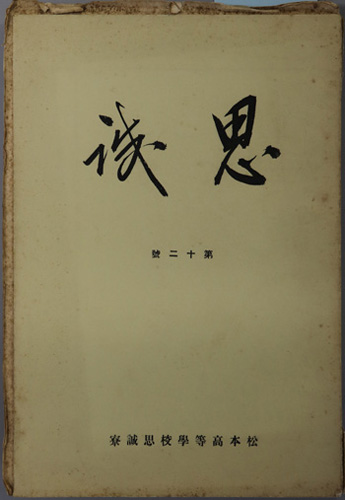 思誠
第十二號
松本高等學校思誠寮